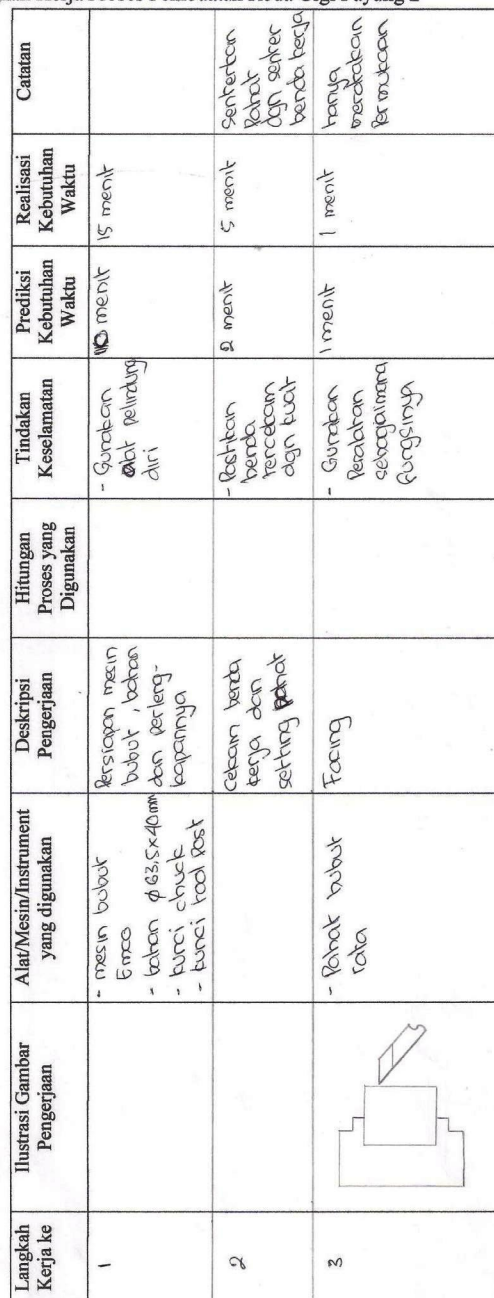 Langkah
Kerja ke
Ilustrasi Gambar
Pengerjaan
Alat/Mesin/Instrument
yang digunakan
Deskripsi
Pengerjaan
Hitungan
Proses yang
Digunakan
Tindakan
Keselamatan
Prediksi
Kebutuhan
Waktu
Realisasi
Kebutuhan
Waktu
Catatan
1
- mesin bubut
Emco
- bahan ϕ 63,5x40mm
- kunci chuck
- kunci tool post
Persiapan mesin
bubut, bahan
dan perleng-
kapannya
- Gunakan
alat pelindung
diri
10 menit
15 menit
2
Cekam benda
kerja dan
setting pahat
- Pastikan
benda
tercekam
dgn kuat
2 menit
5 menit
Senterkan
Pahat
dgn senter
benda kerja
3
- Pahat bubut
rata
Facing
- Gunakan
Peralatan
sebagaimana
fungsinya
1 menit
1 menit
hanya
meratakan
Permukaan